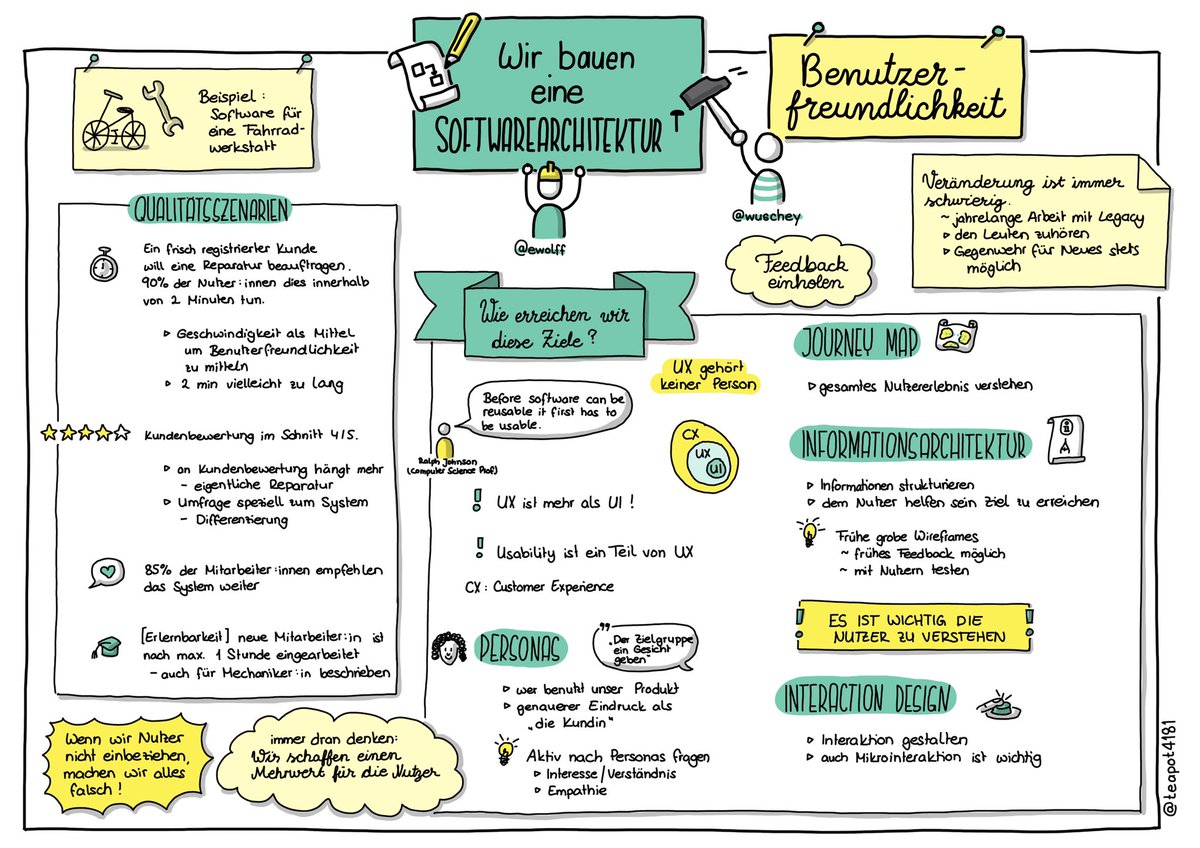 Beispiel:
Software für
eine Fahrrad-
werkstatt
Wir bauen
eine
SOFTWAREARCHITEKTUR
@ewolff
@wuschey
Benutzer-
freundlichkeit
Veränderung ist immer
schwierig.
~ jahrelange Arbeit mit Legacy
▹ den Leuten zuhören
▹ Gegenwehr für Neues stets
möglich
Feedback
einholen
QUALITÄTSSZENARIEN
Ein frisch registrierter Kunde
will eine Reparatur beauftragen.
90% der Nutzer:innen dies innerhalb
von 2 Minuten tun.
▹ Geschwindigkeit als Mittel
um Benutzerfreundlichkeit
zu mitteln
▹ 2 min vielleicht zu lang
Kundenbewertung im Schnitt 4/5.
▹ an Kundenbewertung hängt mehr
- eigentliche Reparatur
▹ Umfrage speziell zum System
- Differenzierung
85% der Mitarbeiter:innen empfehlen
das System weiter
[Erlernbarkeit] neue Mitarbeiter:in ist
nach max. 1 Stunde eingearbeitet
- auch für Mechaniker:in beschrieben
Wenn wir Nutzer
nicht einbeziehen,
machen wir alles
falsch!
immer dran denken:
Wir schaffen einen
Mehrwert für die Nutzer
Wie erreichen wir
diese Ziele?
Before software can be
reusable it first has to
be usable.
Ralph Johnson
(Computer Science Prof)
UX gehört
keiner Person
CX
UX
UI
! UX ist mehr als UI!
! Usability ist ein Teil von UX
CX: Customer Experience
PERSONAS
"Der Zielgruppe
ein Gesicht
geben"
▹ wer benutzt unser Produkt
▹ genauerer Eindruck als
„die Kundin"
Aktiv nach Personas fragen
▹ Interesse/Verständnis
▹ Empathie
JOURNEY MAP
▹ gesamtes Nutzererlebnis verstehen
INFORMATIONSARCHITEKTUR
▹ Informationen strukturieren
▹ dem Nutzer helfen sein Ziel zu erreichen
Frühe grobe Wireframes
~ frühes Feedback möglich
~ mit Nutzern testen
! ES IST WICHTIG DIE !
NUTZER ZU VERSTEHEN
INTERACTION DESIGN
▹ Interaktion gestalten
▹ auch Mikrointeraktion ist wichtig
@teapot4181